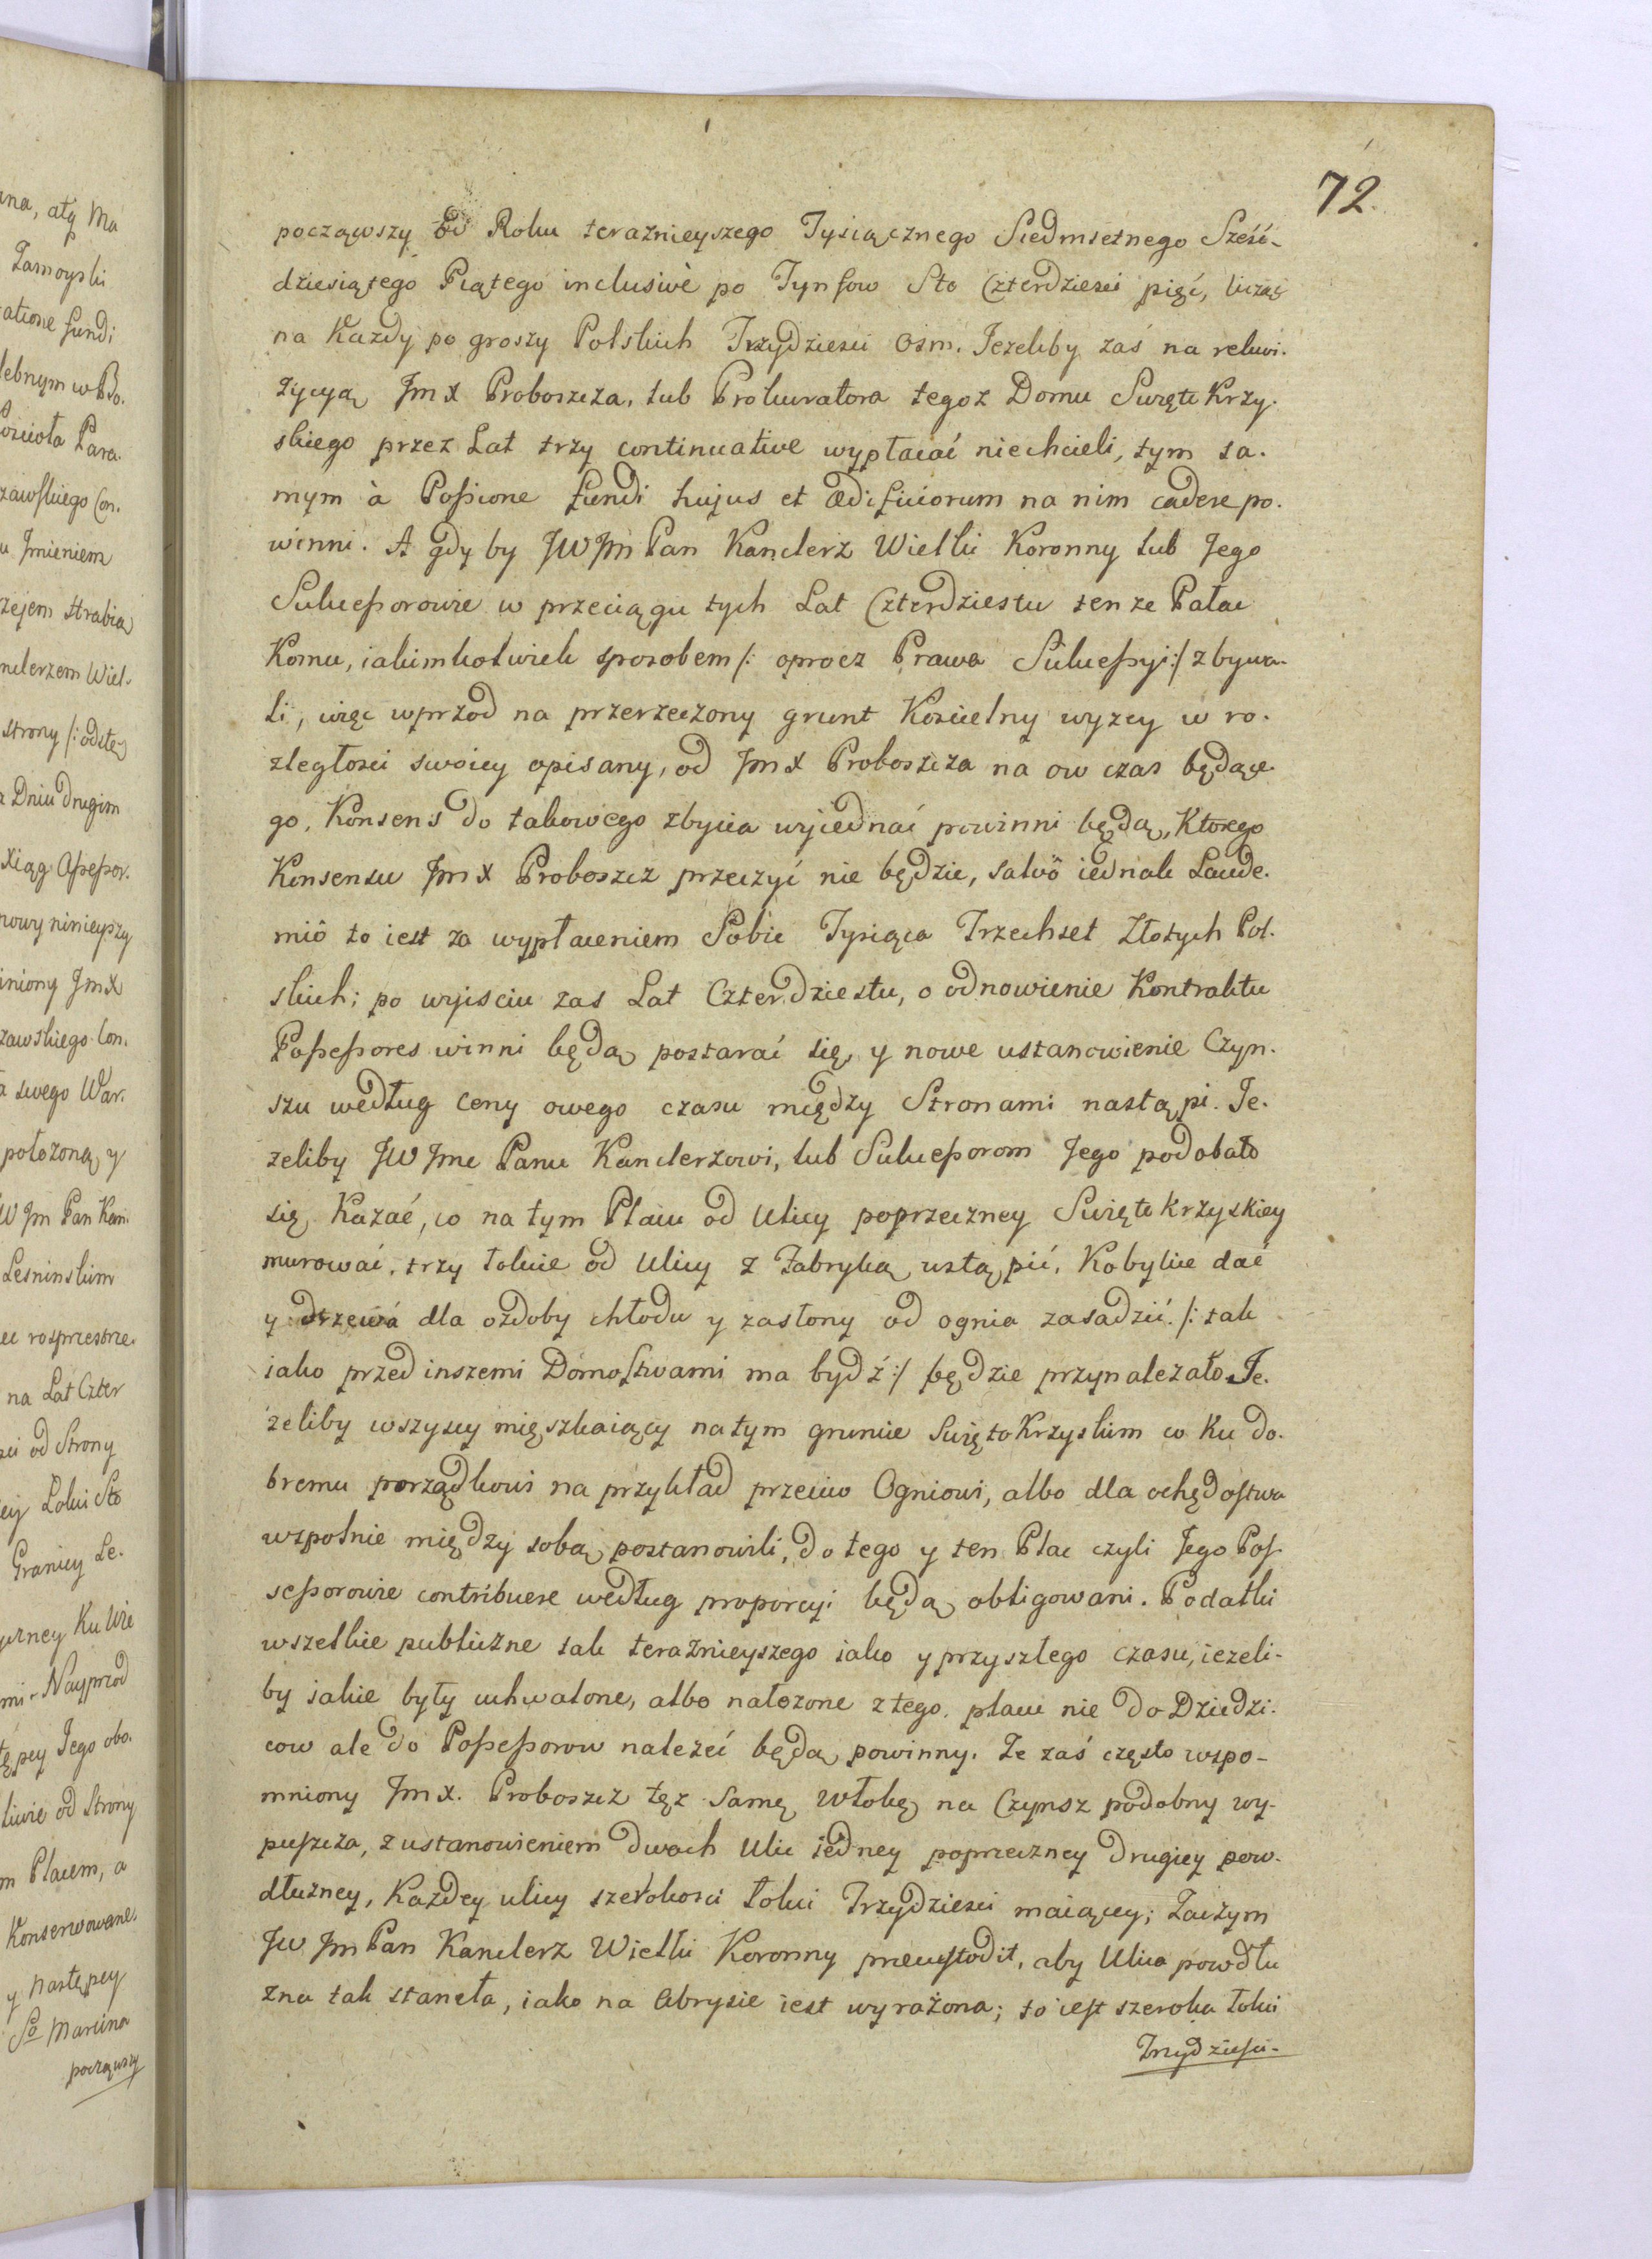 72.
począwszy od Roku teraznieyszego Tysiącznego Siedmsetnego Sześć-
dziesiątego Piątego inclusivè po Tynfow Sto Czterdziesci pięć, licząc
na Każdy po groszy Polskich Trzydziesci Osm. Jezeliby zaś na rekwi-
zycyą Jm X Proboszcza, lub Prokuratora tegoz Domu Swięto Krzy-
skiego przez Lat trzy continuative wypłacać niechcieli, tym sa-
mym à Possione fundi hujus et Ædificiorum na nim cadere po-
winni. A gdy by JW Jm Pan Kanclerz Wielki Koronny lub Jego
Sukcessorowie w przeciągu tych Lat Czterdziestu tenze Pałac
Komu, iakimkolwiek sposobem /: oprocz Prawa Sukcessyi :/ zbywa-
li, więc wprzod na przerzeczony grunt Koscielny wyzey w ro-
zległosci swoiey opisany, od Jm X Proboszcza na ow czas będące-
go, Konsens do takowego zbycia wyiednać powinni będą, Ktorego
Konsensu Jm X Proboszcz przeczyć nie będzie, salvô iednak Laude-
miô to iest za wypłaceniem Sobie Tysiąca Trzechset Złotych Pol-
skich; po wyisciu zas Lat Czterdziestu, o odnowienie Kontraktu
Possessores winni będą postarać się, y nowe ustanowienie Czyn-
szu według ceny owego czasu między Stronami nastąpi. Je-
zeliby JW Jme Panu Kanclerzowi, lub Sukcessorom Jego podobało
się Kazać, co na tym Placu od Ulicy poprzeczney Swięto krzyskiey
murować, trzy łokcie od Ulicy z Fabryką ustąpić, Kobylice dać
y drzewá dla ozdoby chłodu y zasłony od ognia zasadzić. /: tak
iako przed inszemi Domostwami ma bydź :/ będzie przynalezało. Je-
żeliby wszyscy mięszkaiący na tym gruncie Swięto Krzyskim co Ku do-
bremu porządkowi na przykład przeciw Ogniowi, albo dla ochędostwa
wspolnie między sobą postanowili, do tego y ten Plac czyli Jego Pos-
sessorowie contribuere według proporcyi będą obligowani. Podatki
wszelkie publiczne tak teraźnieyszego iako y przyszłego czasu, iezeli-
by iakie były uchwalone, albo nałozone z tego placu nie do Dziedzi-
cow ale do Possessorow nalezeć będą powinny. Ze zaś często wspo-
mniony Jm X. Proboszcz tęz Samę Włokę na Czynsz podobny wy-
puszcza, z ustanowieniem dwoch Ulic iedney poprzeczney drugiey pow-
dłużney, Każdey ulicy szerokosci łokci Trzydziesci maiącey; Zaczym
JW Jm Pan Kanclerz Wielki Koronny aby Ulica powdłu
zna tak staneła, iako na Abrysie iest wyrażona; to iest szeroka łokci
Trzydziesci-